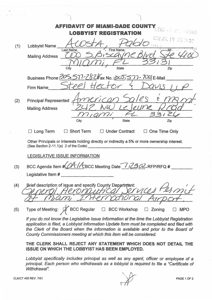 AFFIDAVIT OF MIAMI-DADE COUNTY
LOBBYIST REGISTRATION
(1) Lobbyist Name Acosta, Pablo
Last Name First Name
Mailing Address 200 S. Biscayne Blvd Ste 4000
Miami, FL 33131
City State Zip
Business Phone Fax No. E-Mail
Firm Name Steel Hector & Davis LLP
(2) Principal Represented American Sales & Mgmt
Mailing Address NW LeJeune Road
Miami FL 33126
City State Zip
☐ Long Term ☐ Short Term ☐ Under Contract ☐ One Time Only
Other Principals or interests holding directly or indirectly a 5% or more ownership interest.
(See Section 2-11.1(s) of the Code)
LEGISLATIVE ISSUE INFORMATION
(3) BCC Agenda Item # BCC Meeting Date RFP/RFQ #
Legislative Item #
(4) Brief description of issue and specify County Department
General Aeronautical Services Permit
at Miami International Airport
(5) Type of Meeting: BCC Regular ☐ BCC Workshop ☐ Zoning ☐ MPO
If you do not know the Legislative issue information at the time the Lobbyist Registration
application is filed, a Lobbyist Information Update form must be completed and filed with
the Clerk of the Board when the information is available and prior to the Board of
County Commissioners meeting at which this item will be considered.
THE CLERK SHALL REJECT ANY STATEMENT WHICH DOES NOT DETAIL THE
ISSUE ON WHICH THE LOBBYIST HAS BEEN EMPLOYED.
Lobbyist specifically includes principal as well as any agent, officer or employee of a
principal. Each person who withdraws as a lobbyist is required to file a "Certificate of
Withdrawal".
PAGE 1 OF 2